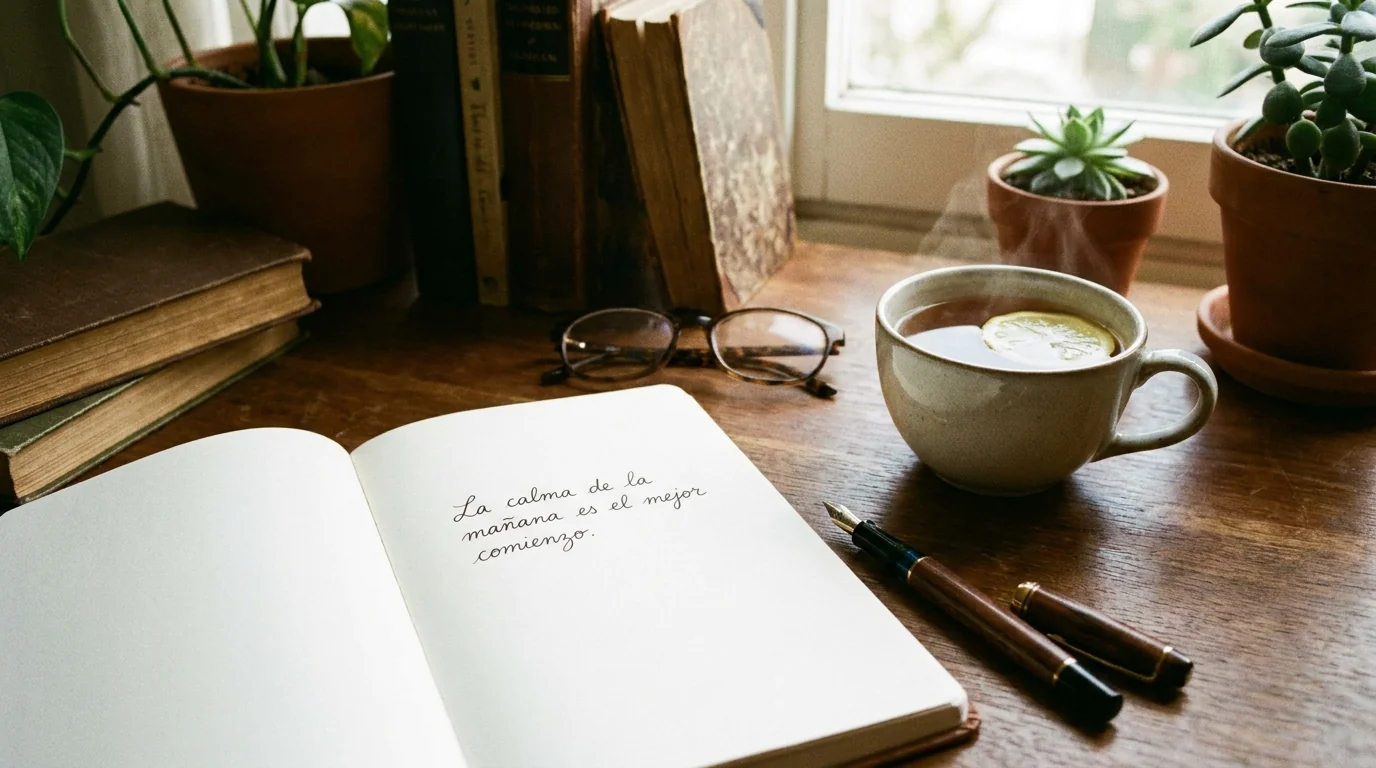 La calma de la
mañana es el mejor
comienzo.